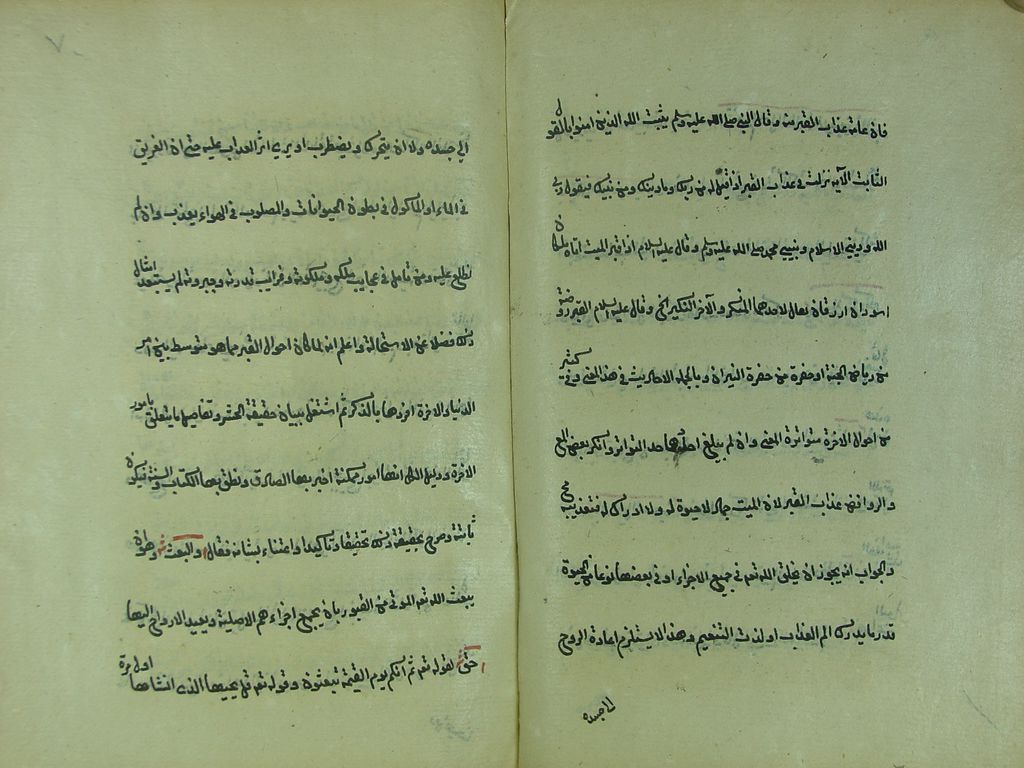 فان عامة عذاب القبر منه وقال النبي صلى الله عليه وسلم يثبت الله الذين امنوا بالقول
الثابت الآية نزلت في عذاب القبر اذا قيل له من ربك وما دينك ومن نبيك فيقول ربي
الله وديني الاسلام ونبيي محمد صلى الله عليه وسلم وقال عليه السلام اذا قبر الميت اتاه ملكان
اسودان ازرقان يقال لاحدهما المنكر والآخر النكير الخ وقال عليه السلام القبر روضة
من رياض الجنة او حفرة من حفرة النيران وبالجملة الاحاديث في هذا المعنى وفي كثير
من احوال الاخرة متواترة المعنى وان لم يبلغ احادها حد التواتر وانكر بعض المع
والروافض عذاب القبر لان الميت جماد لا حيوة له ولا ادراك له فتعذيبه مح
والجواب انه يجوز ان يخلق الله تعه في جميع الاجزاء او في بعضها نوعا من الحيوة
قدر ما يدرك الم العذاب او لذت التنعيم وهذا لا يستلزم اعادة الروح
الى جسده
الى جسده ولا ان يتحرك ويضطرب او يرى اثر العذاب عليه حتى ان الغريق
في الماء او المأكول في بطون الحيوانات والمصلوب في الهواء يعذب وان لم
نطلع عليه ومن تأمل في عجايب ملكه وملكوته وغرايب قدرته وجبروته لم يستبعد امثال
ذلك فضلا عن الاستحالة واعلم انه لما كان احوال القبر مما هو متوسط بين امر
الدنيا والاخرة افردها بالذكر ثم اشتغل ببيان حقيقة الحشر وتفاصيل ما يتعلق بامور
الاخرة ودليل الكل انها امور ممكنة اخبر بها الصادق ونطق بها الكتاب والسنة فيكون
ثابتة وصرح بحقيقة ذلك تحقيقا وتأكيدا واعتناء بشانه فقال والبعث وهو ان
يبعث الله تعه الموتى من القبور بان يجمع اجزاءهم الاصلية ويعيد الارواح اليها
حق لقوله تعه ثم انكم يوم القيمة تبعثون وقوله تعه قل يحييها الذى انشاها اول مرة